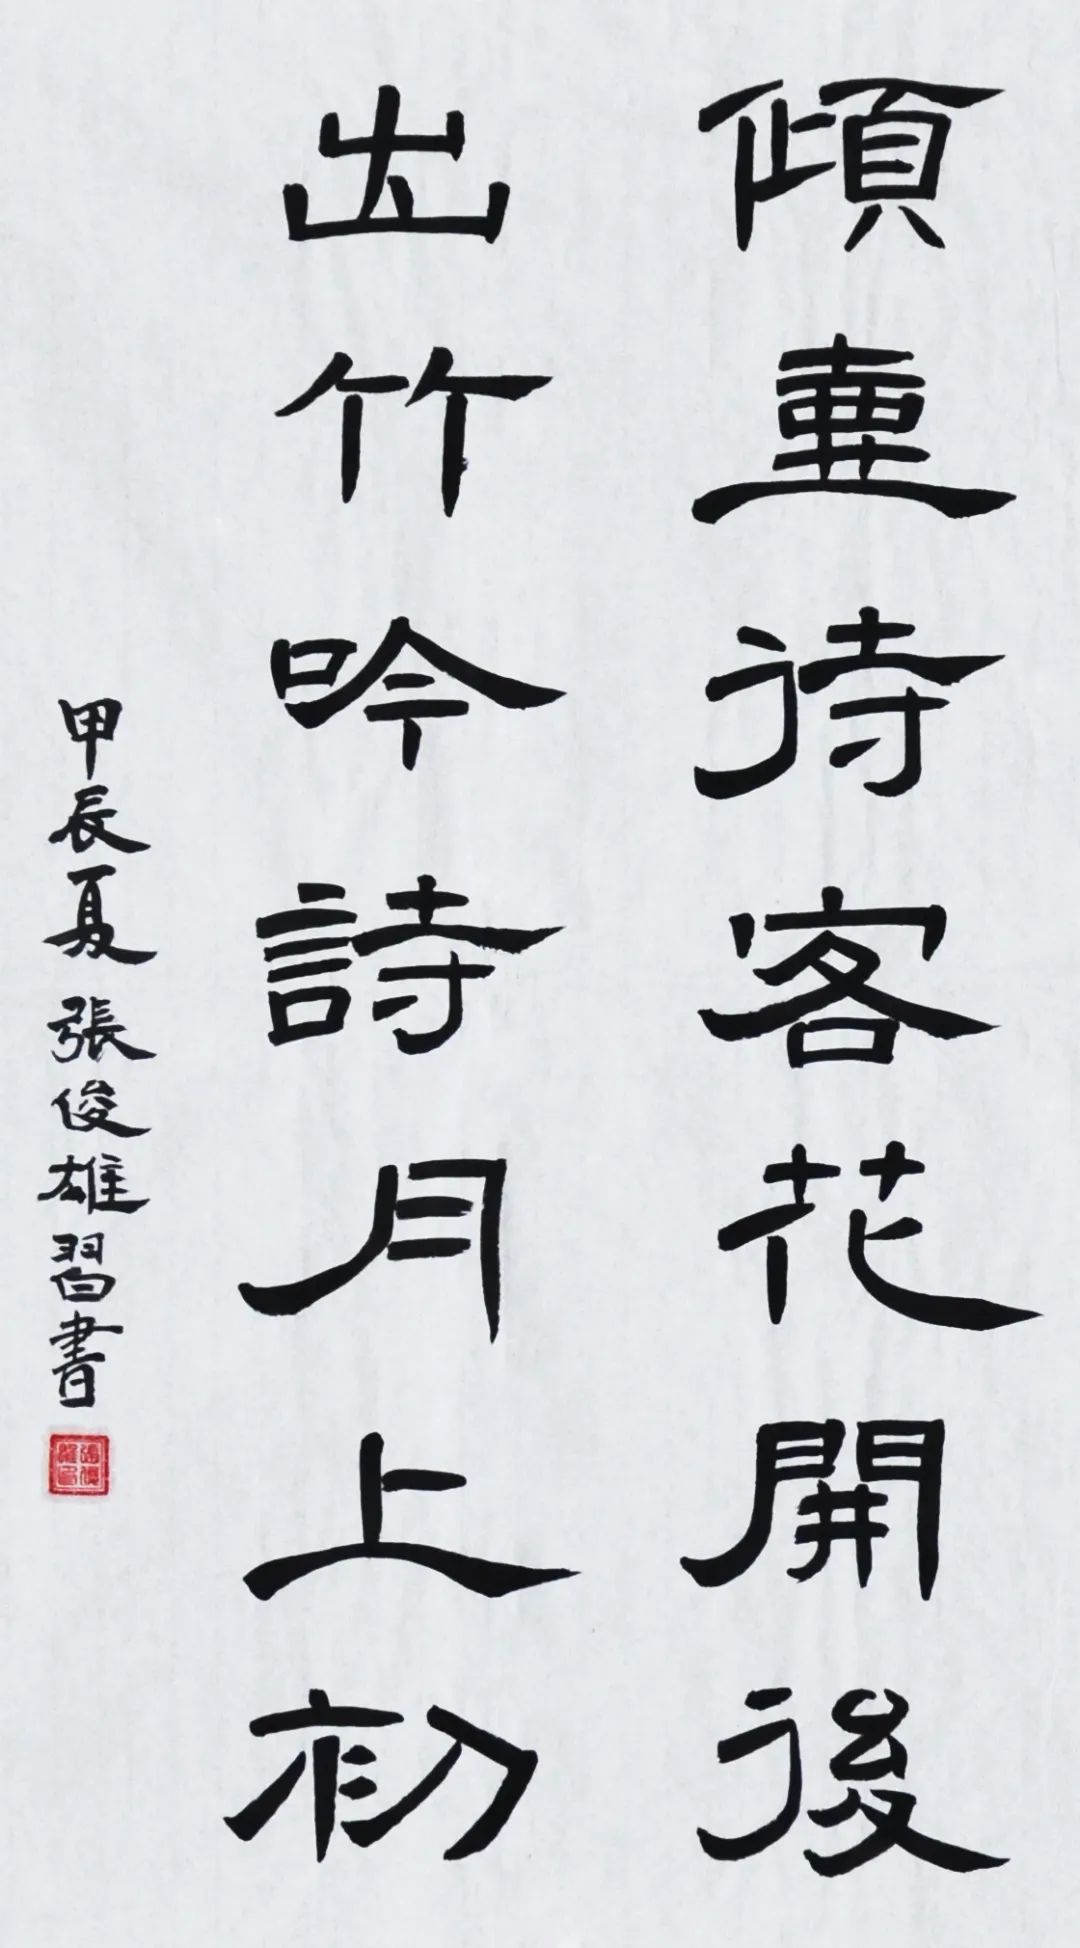 傾壷待客花開後
出竹吟詩月上初
甲辰夏 張俊雄習書